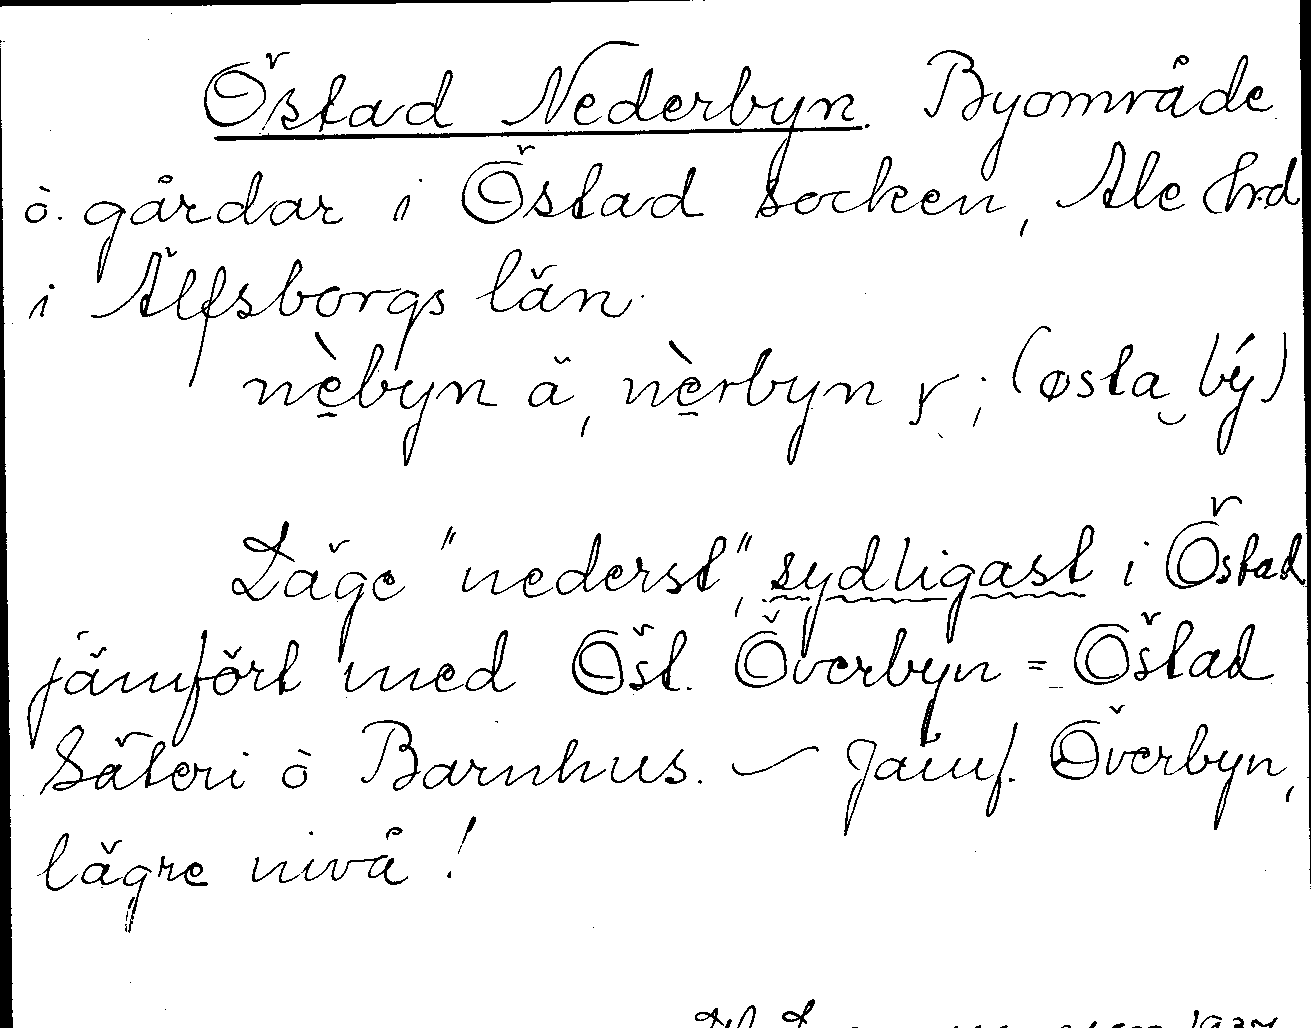 Östad Nederbyn. Byområde
ò. gårdar i Östad socken, Ale hrd
i Älfsborgs län.
nè̱byn ä, nè̱rbyn ɣ; (østa‿bý)
Läge "nederst", sydligast i Östad
jämfört med Öst. Överbyn = Östad
Säteri ò Barnhus. – Jämf. Överbyn,
lägre nivå!